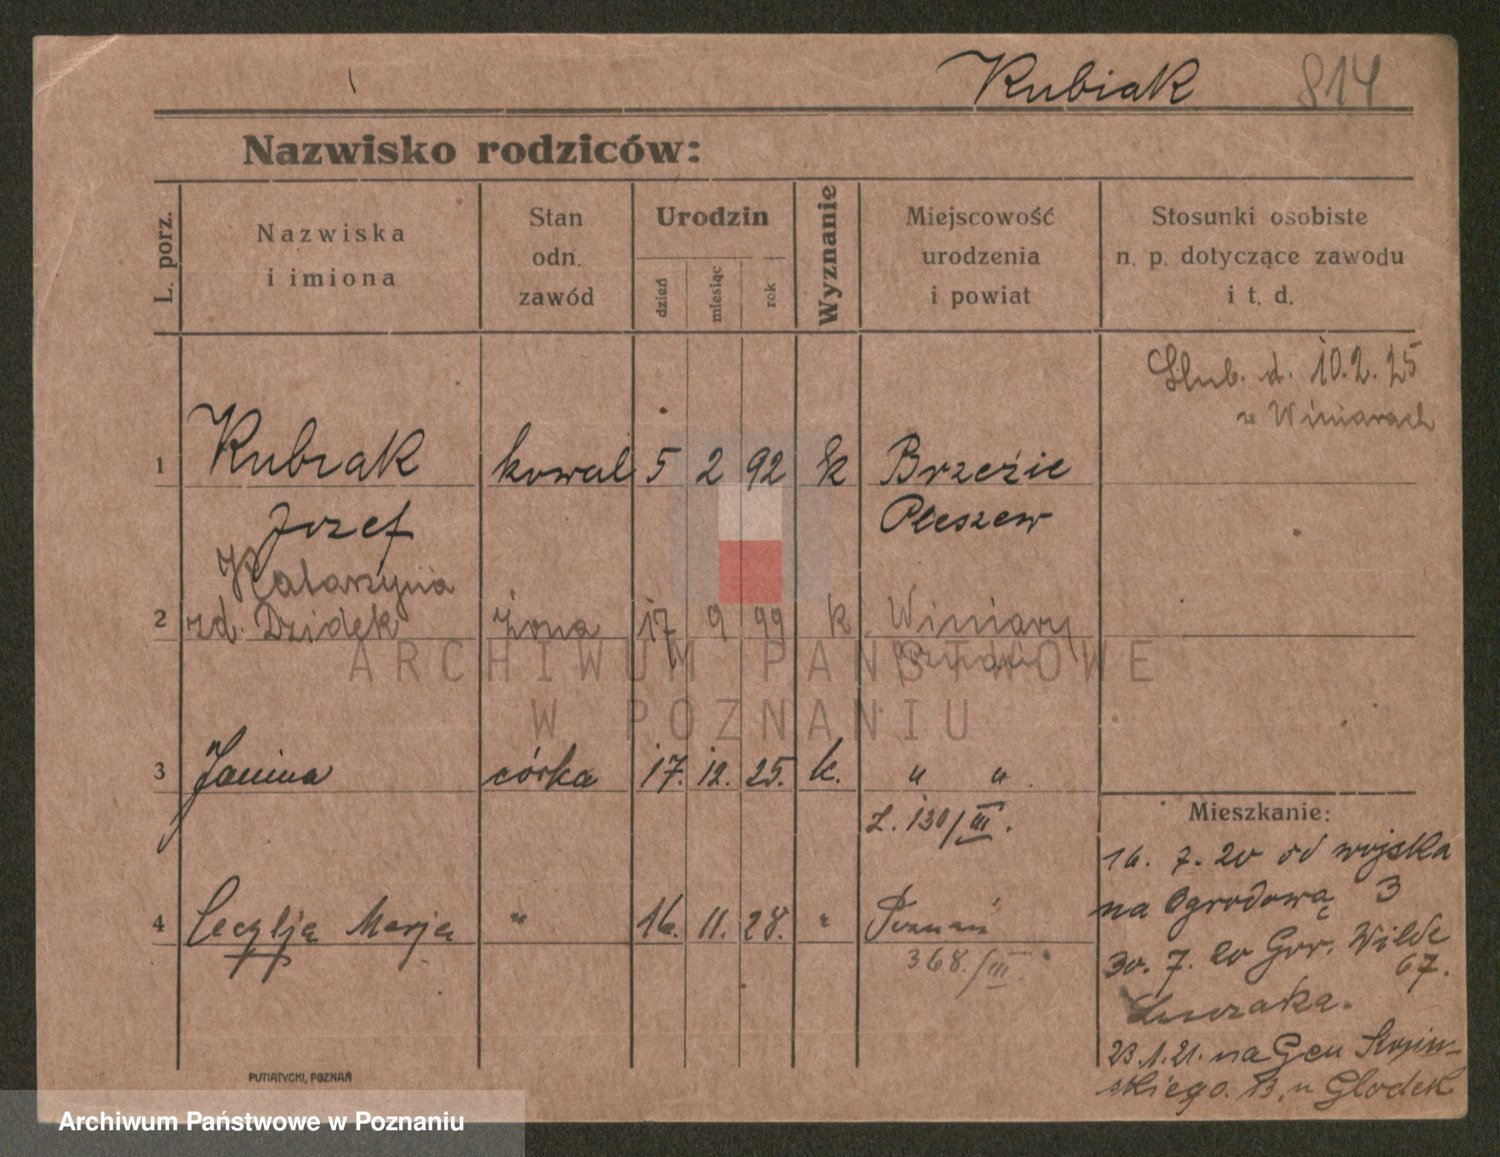 Kubiak 814
Nazwisko rodziców:
L. porz.
Nazwiska
i imiona
Stan
odn.
zawód
Urodzin
dzień
miesiąc
rok
Wyznanie
Miejscowość
urodzenia
i powiat
Stosunki osobiste
n. p. dotyczące zawodu
i t. d.
Ślub. d. 10.2.25
w Winiarach
1 Kubiak kowal 5 2 92 k Brzezie
Józef Pleszew
Katarzyna
2 zd. Dzidek żona 17 9 99 k Winiary
ARCHIWUM PAŃSTWOWE
W POZNANIU
3 Janina córka 17. 12. 25. k. " "
Z. 130/III.
Mieszkanie:
16. 7. 20 od wojska
na Ogrodową 3
4 Cecylja Marja " 16. 11. 28. " Poznań
368./III.
30. 7. 20 Gór. Wilda
67.
23.1.21. na Gen
skiego. 13, u
PUTIATYCKI, POZNAŃ
Archiwum Państwowe w Poznaniu